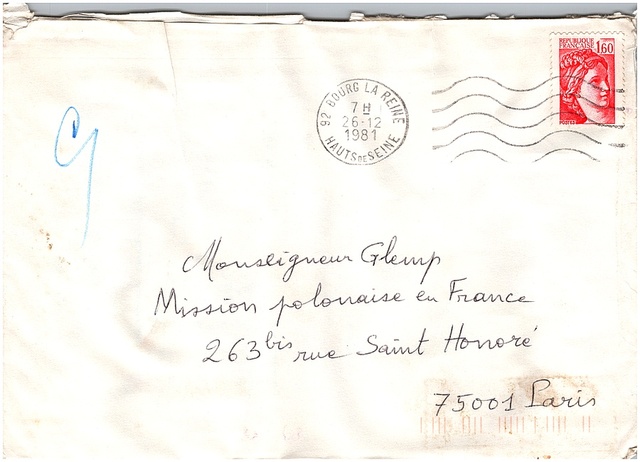 REPUBLIQUE
FRANÇAISE 1,60
92 BOURG LA REINE
7 H
26-12
1981
HAUTS DE SEINE
Monseigneur Glemp
Mission polonaise en France
263 bis rue Saint Honoré
75001 Paris